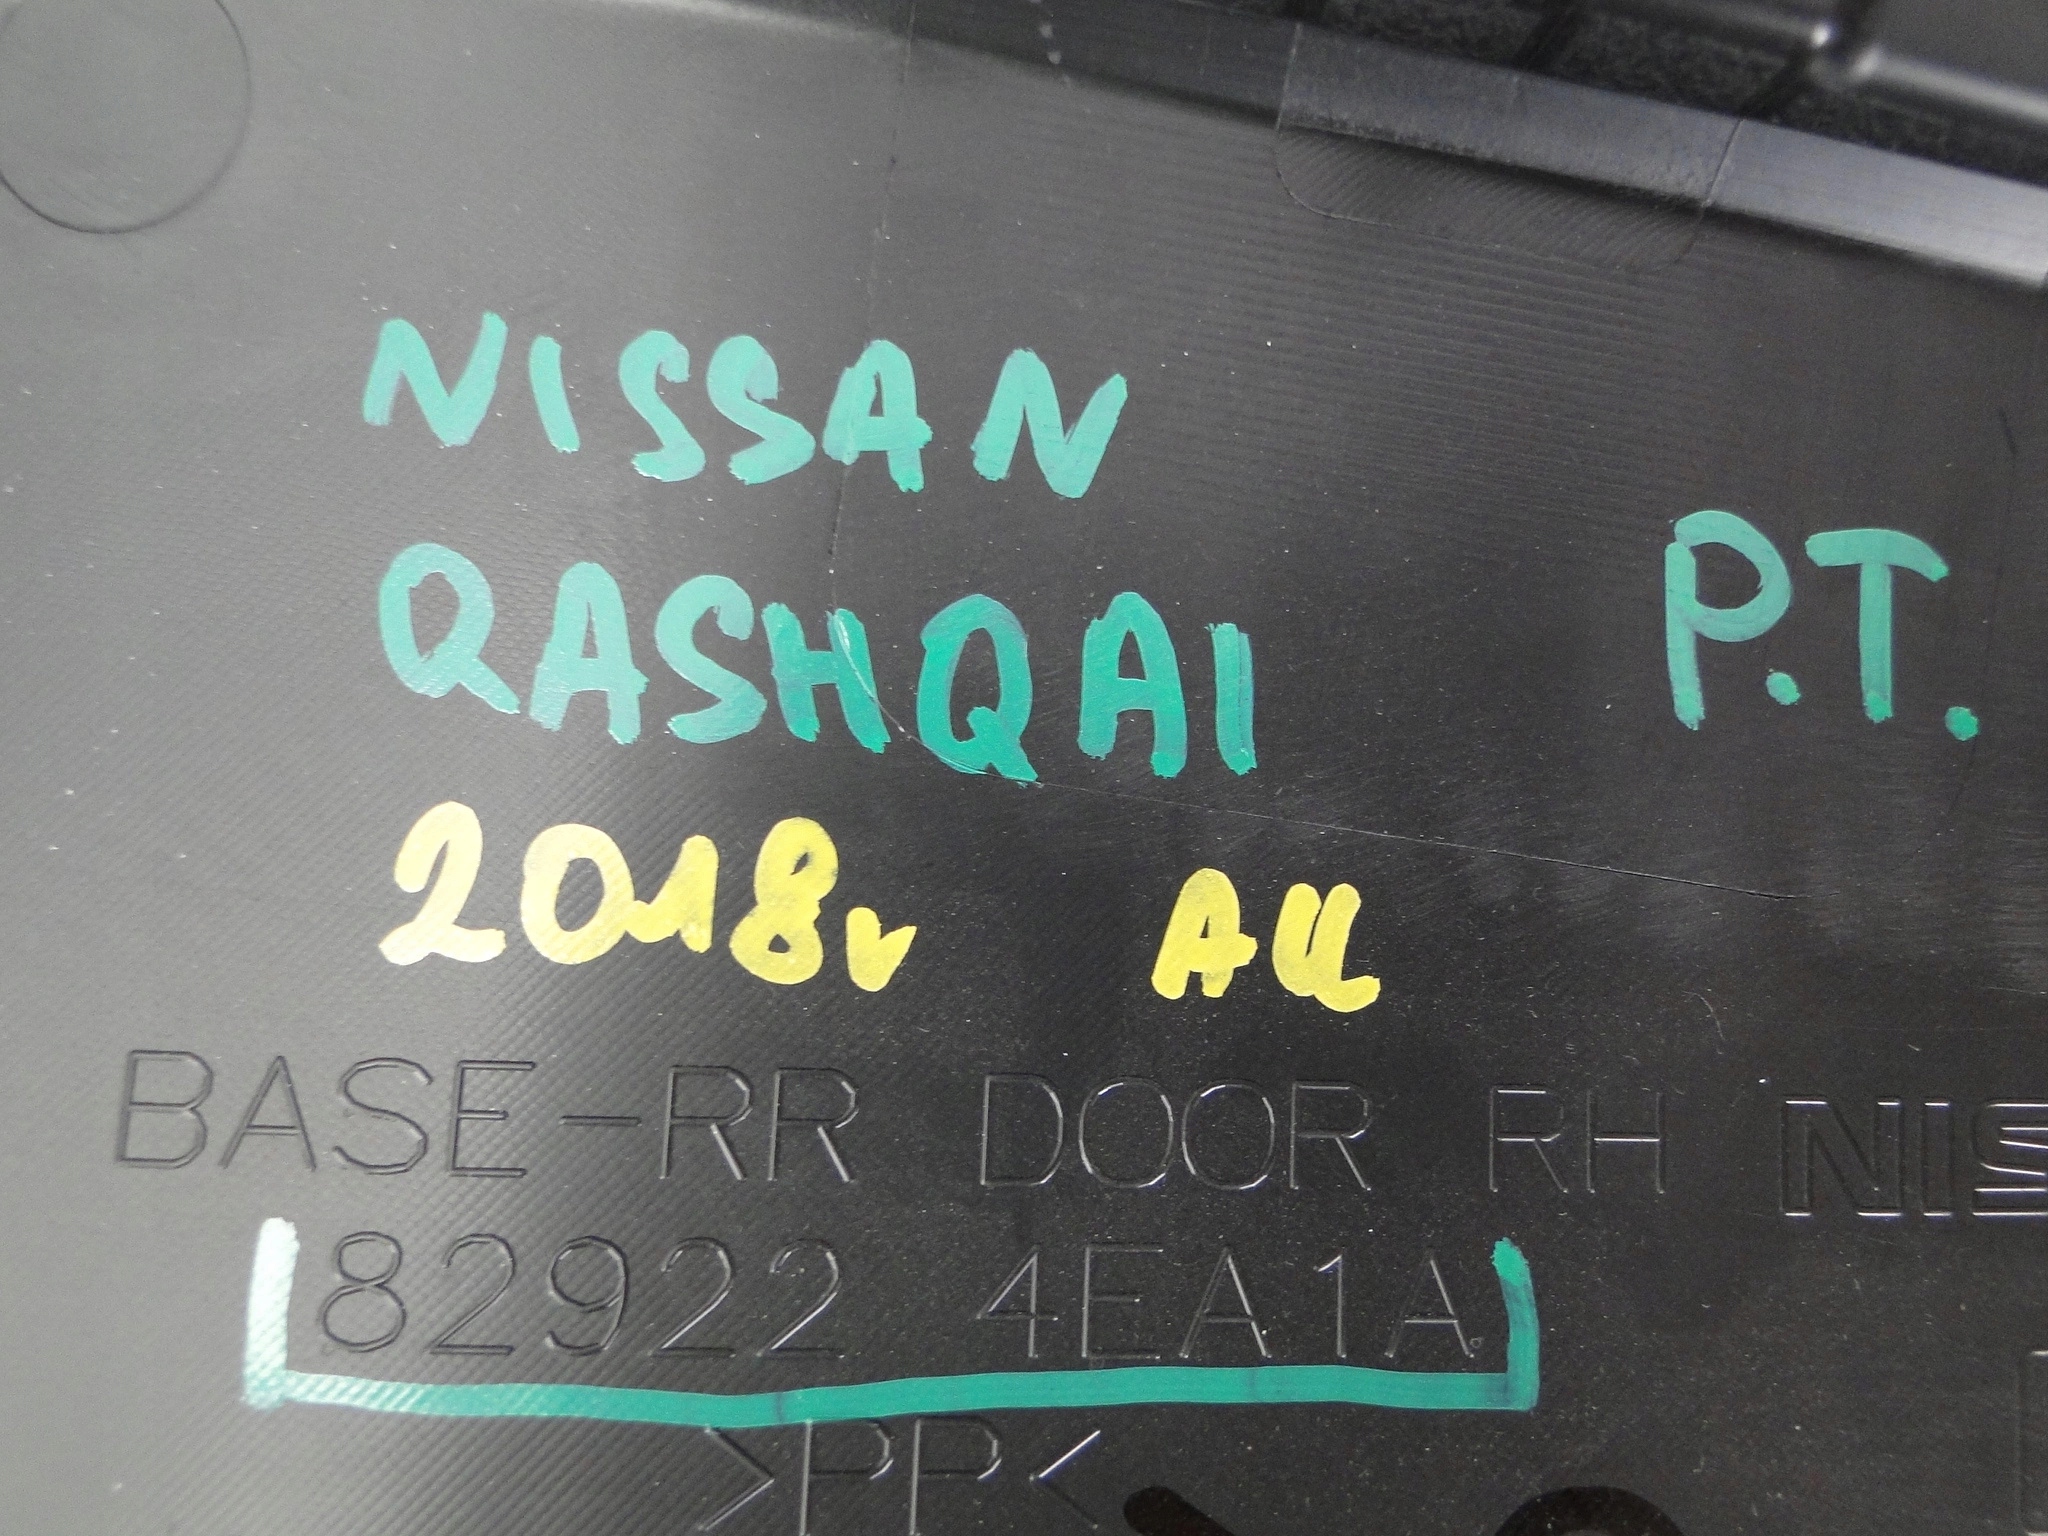 NISSAN
QASHQAI P.T.
2018r
BASE-RR DOOR RH
82922 4EA1A
>PP<